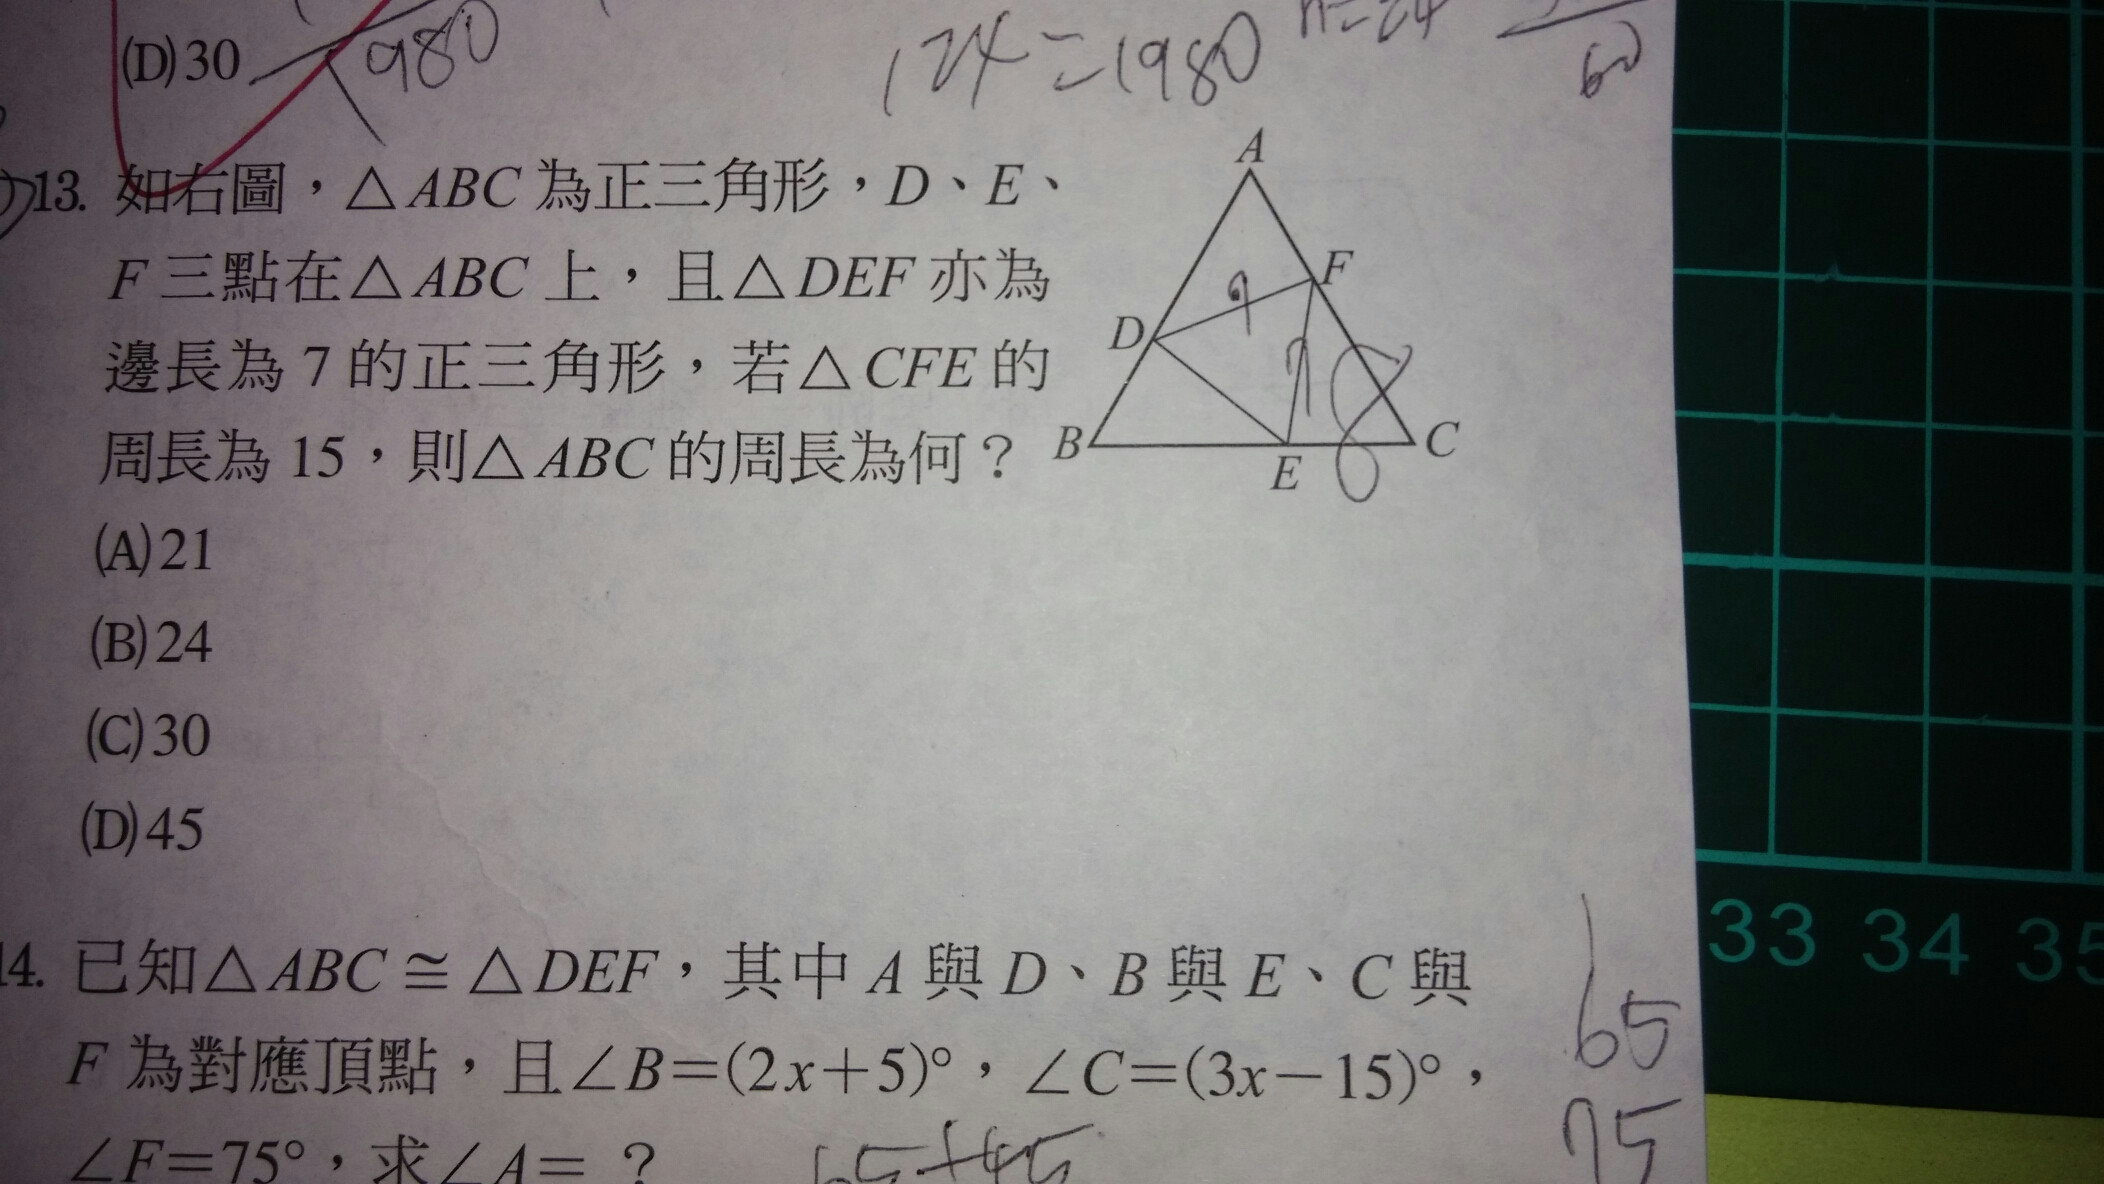 (D)30
980
124=1980
n=24
60
13. 如右圖，△ABC為正三角形，D、E、
F三點在△ABC上，且△DEF亦為
邊長為7的正三角形，若△CFE的
周長為15，則△ABC的周長為何？
A
F
D
B
E
C
7
7
8
(A)21
(B)24
(C)30
(D)45
14. 已知△ABC≅△DEF，其中A與D、B與E、C與
F為對應頂點，且∠B=(2x+5)°，∠C=(3x-15)°，
∠F=75°，求∠A=？
65+45
65
75
33 34 35